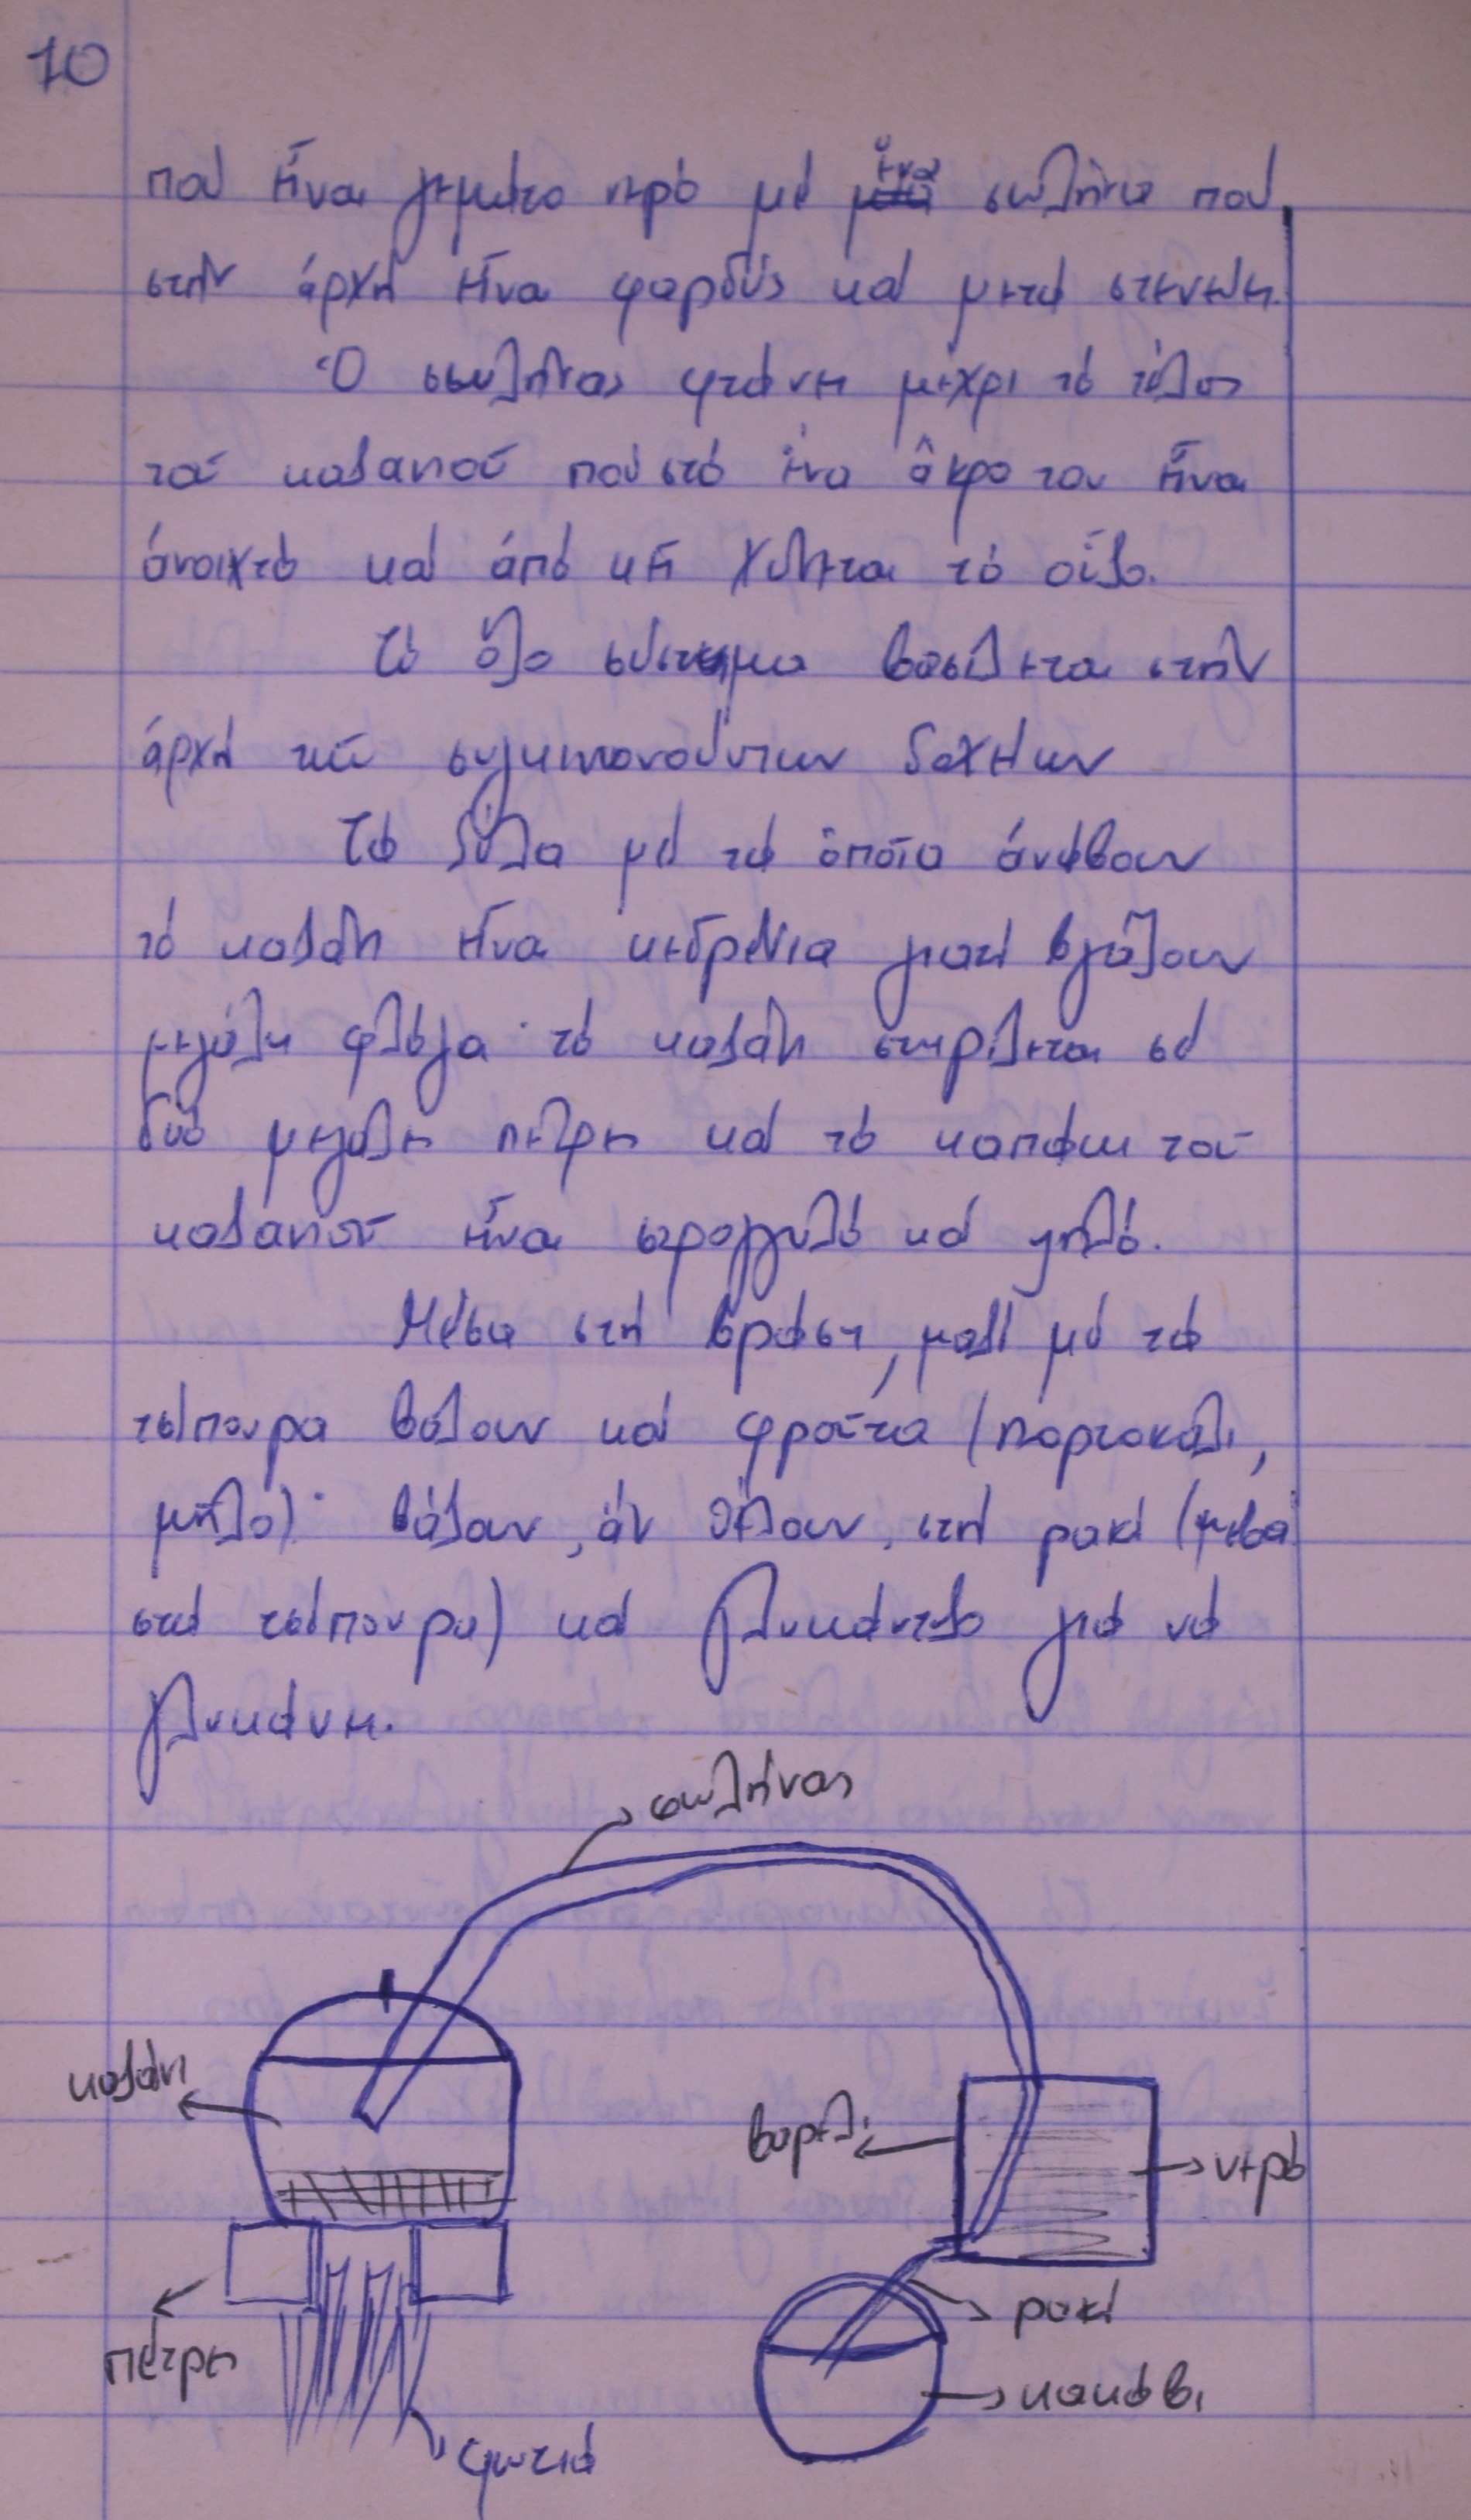 10
πού εἶναι γεμάτο νερό μέ ἕνα σωλήνα πού
στήν ἀρχή εἶναι φαρδύς καί μετά στενεύει.
Ὁ σωλήνας φτάνει μέχρι τό τέλος
τοῦ καζανιοῦ πού στό ἕνα ἄκρο του εἶναι
ἀνοιχτό καί ἀπό κεῖ χύνεται τό οὖζο.
Τό ὅλο σύστημα βασίζεται στήν
ἀρχή τῶν συγκοινωνούντων δοχείων
Τά ξύλα μέ τά ὁποῖα ἀνάβουν
τό καζάνι εἶναι κεδρένια γιατί βγάζουν
μεγάλη φλόγα· τό καζάνι στηρίζεται σέ
δυό μεγάλες πέτρες καί τό καπάκι τοῦ
καζανιοῦ εἶναι στρογγυλό καί ψηλό.
Μέσα στή βράση, μαζί μέ τά
τσίπουρα βάζουν καί φροῦτα (πορτοκάλι,
μῆλο)· βάζουν, ἄν θέλουν, στή ρακί (μέσα
στά τσίπουρα) καί γλυκάνισο γιά νά
γλυκάνει.
σωλήνας
καζάνι
βαρέλι
νερό
ρακί
πέτρες
κακάβι
φωτιά